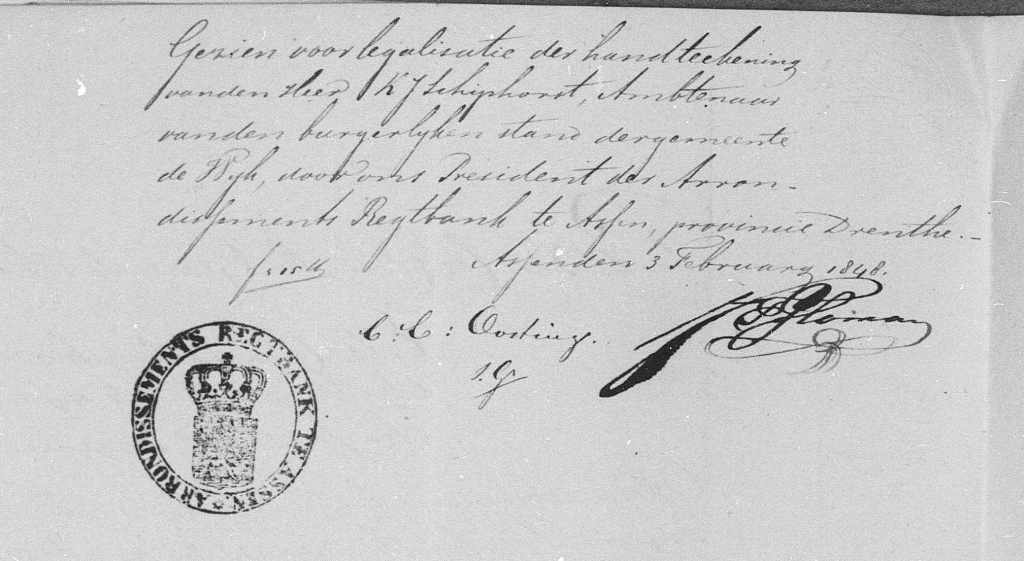 Gezien voor legalisatie der handteekening
van den Heer K J Schiphorst, Ambtenaar
van den burgerlyken stand der gemeente
de Wyk, door ons President der Arron-
dissements Regtbank te Assen, provincie Drenthe.-
Assen den 3 February 1848.
C: C: Oosting.
ARRONDISSEMENTS REGTBANK TE ASSEN